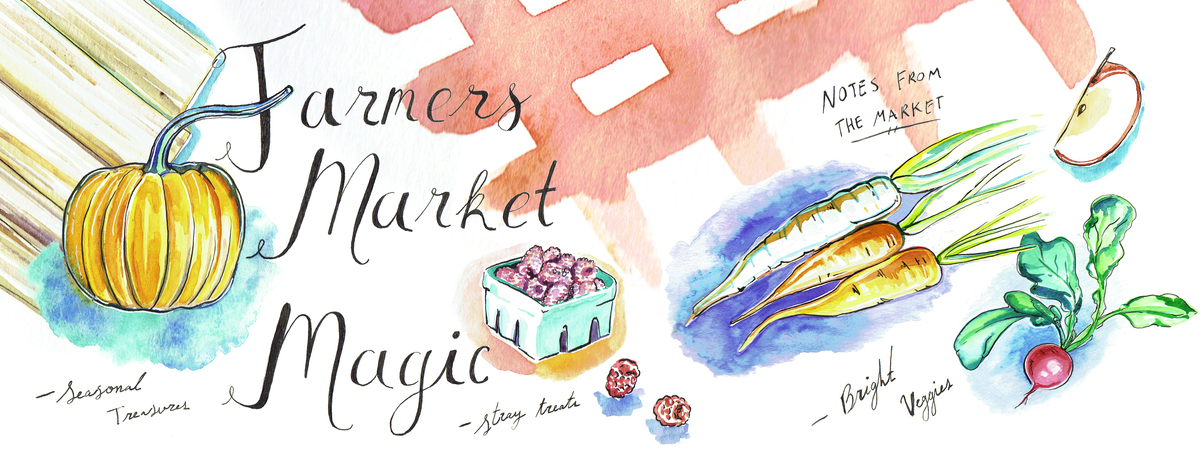 Farmers
Market
Magic
NOTES FROM
THE MARKET
- Seasonal
Treasures
- stray treats
- Bright
Veggies